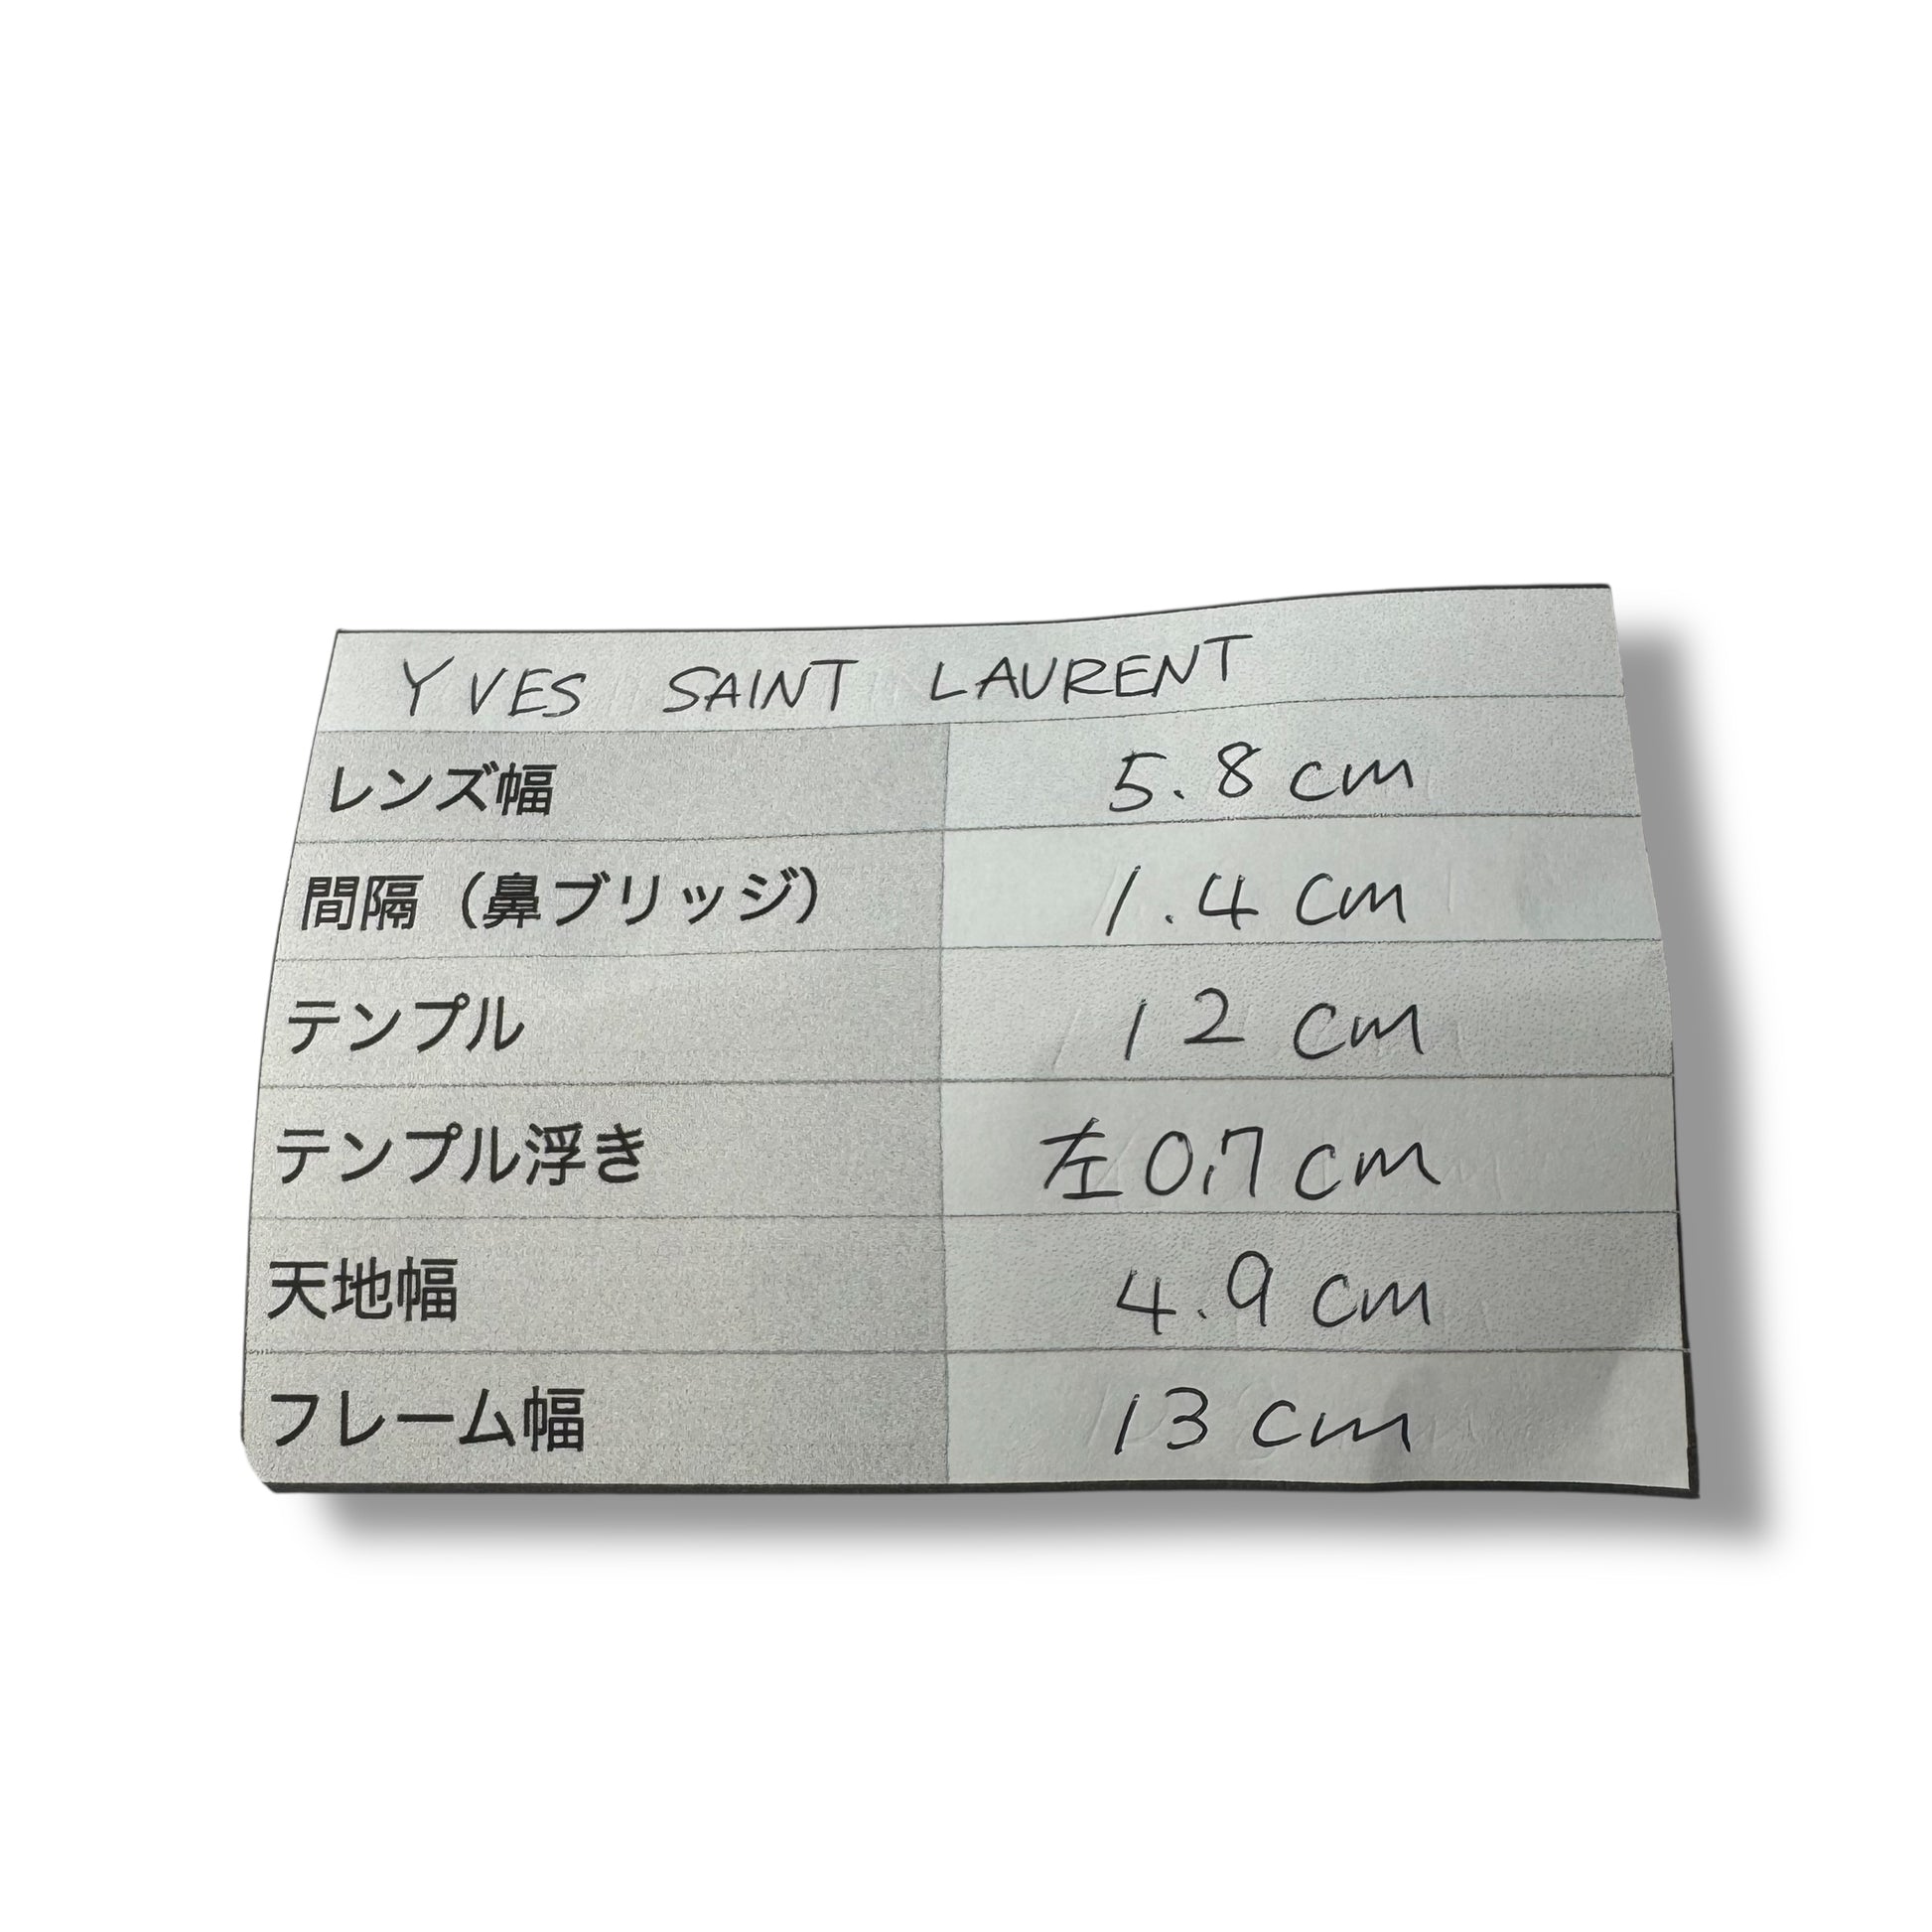 YVES SAINT LAURENT
レンズ幅 5.8cm
間隔（鼻ブリッジ） 1.4cm
テンプル 12cm
テンプル浮き 左0.7cm
天地幅 4.9cm
フレーム幅 13cm